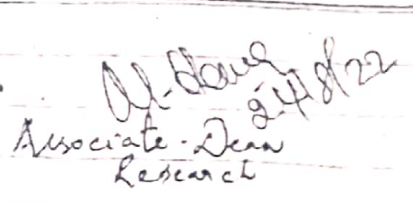 24/8/22
Associate-Dean
Research